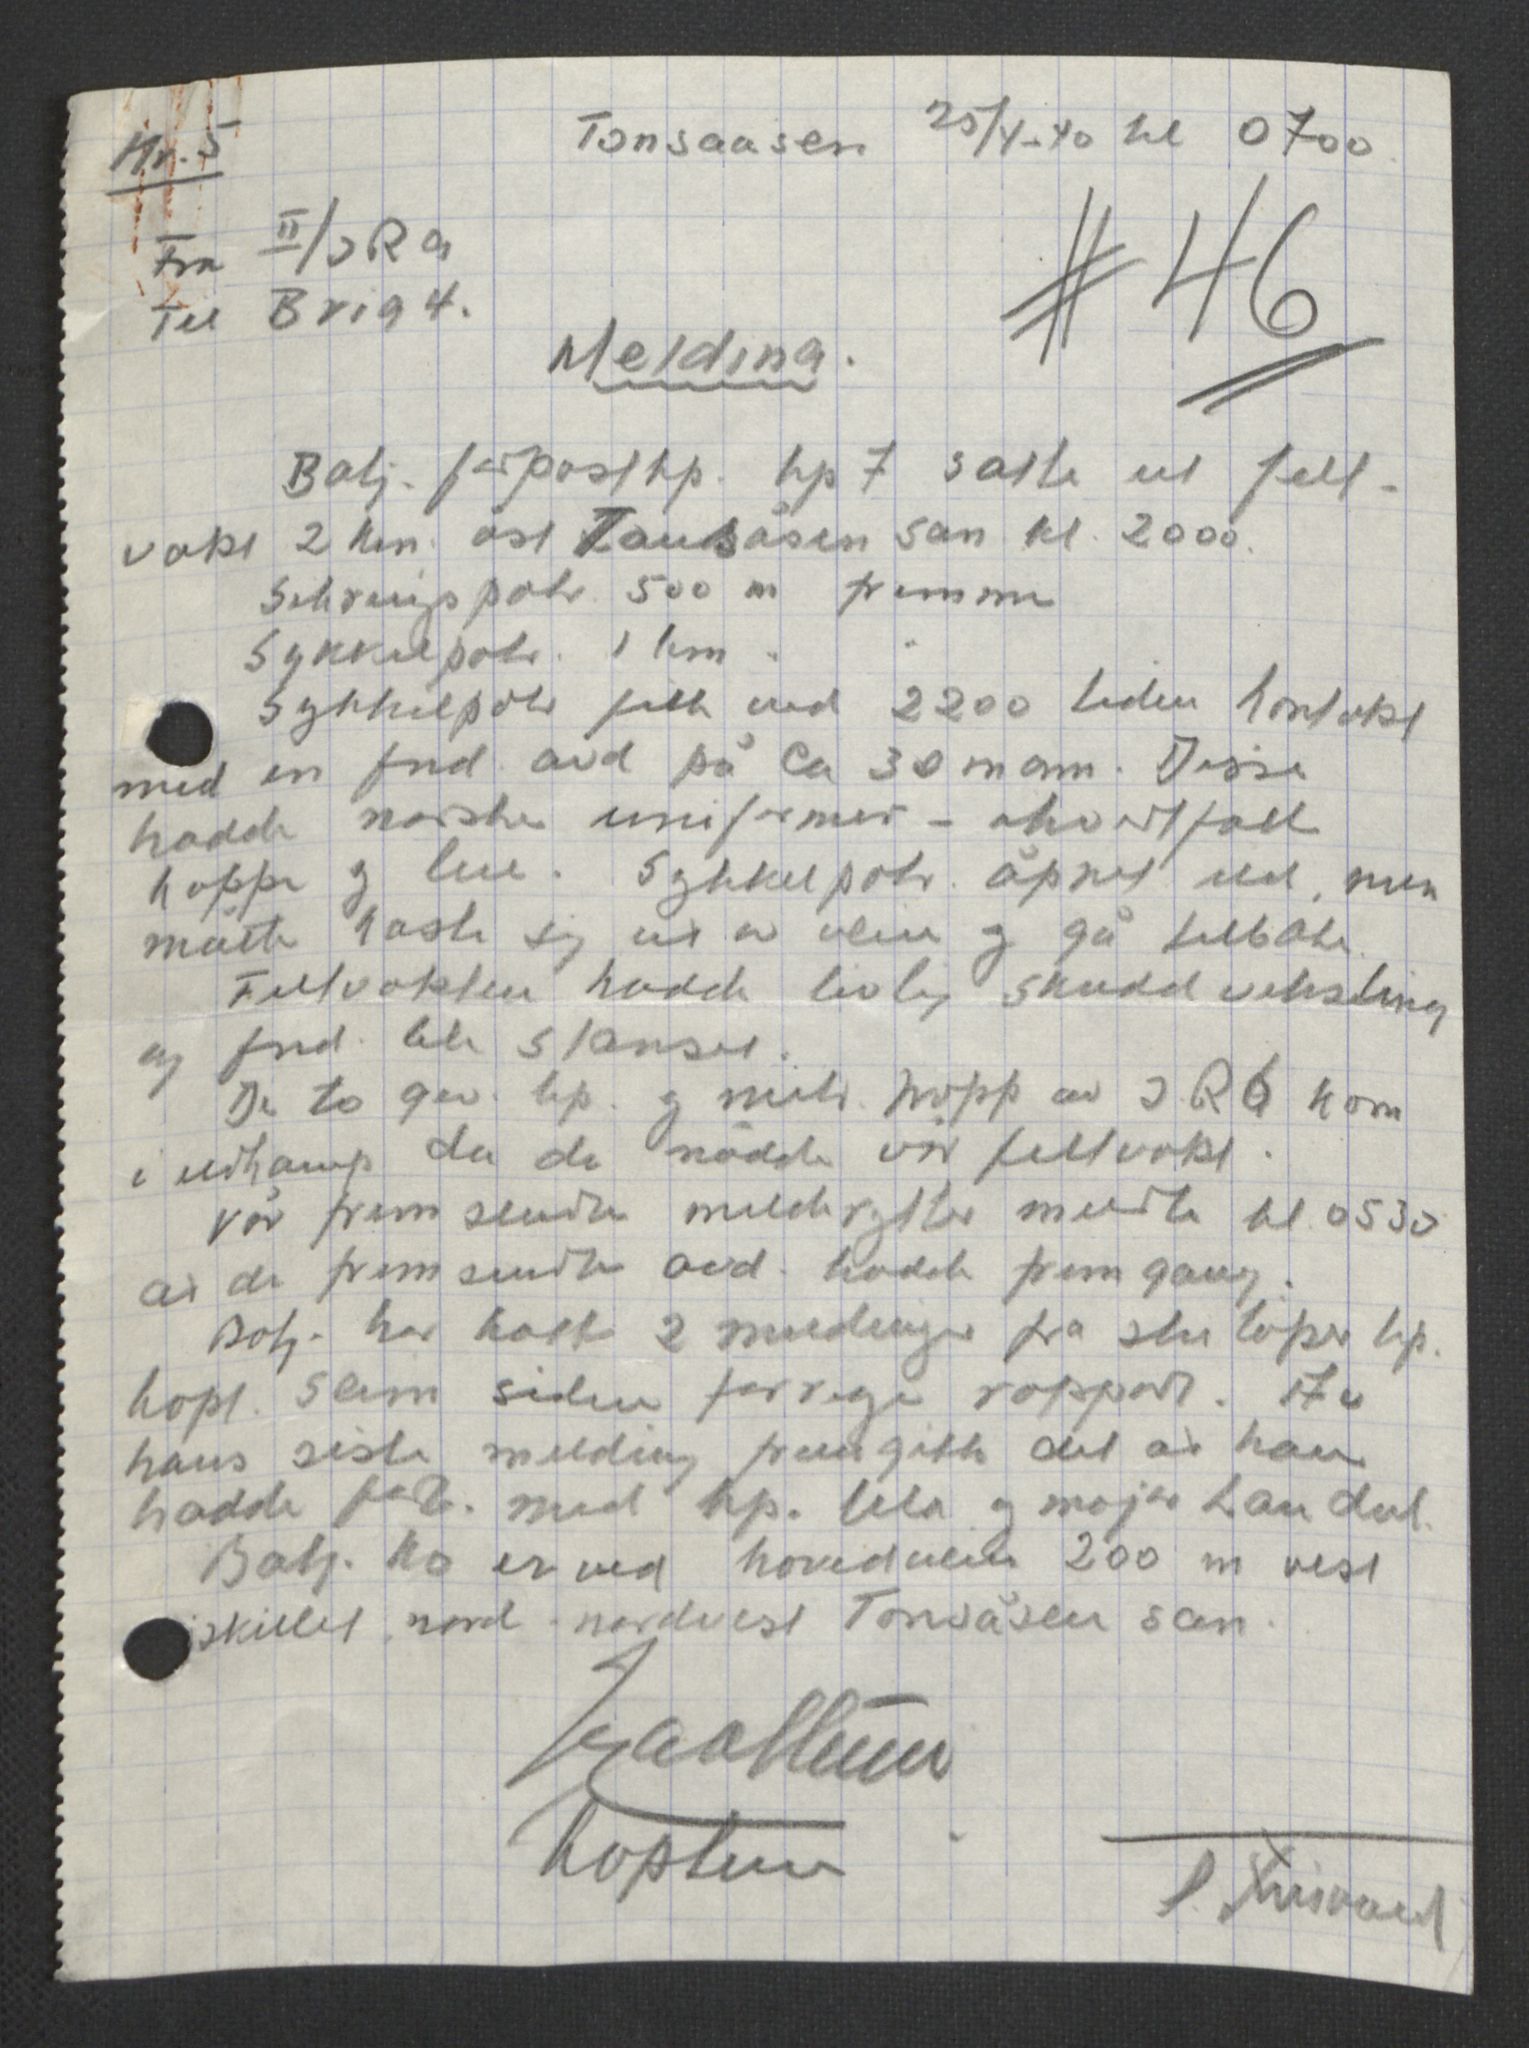 Nr. 5
Tonsaasen 25/4-40 kl 0700
Fra II/IR 9
Til Brig 4.
# 46
Melding.
Batj. forpostkp. kp 7 satte ut felt-
vakt 2 km. øst Tonsåsen san kl. 2000.
Sikringspatr. 500 m fremme
Sykkelpatr. 1 km "
Sykkelpatr fikk ved 2200 tiden kontakt
med en fnd. avd på Ca 30 mann. Disse
hadde norske uniformer - ihvertfall
kappe og lue. Sykkelpatr. åpnet ild, men
måtte kaste sig ut av veien og gå tilbake.
Feltvakten hadde livlig skuddveksling
og fnd. ble stanset.
De to gev. kp. og mitr. tropp av IR 6 kom
i ildkamp da de nådde vår feltvakt.
Vår fremsendte meldrytter meldte kl. 0530
at de fremsendte avd. hadde fremgang.
Batj. har hatt 2 meldinger fra skiløper kp.
kapt. Seim siden forrige rapport. Av
hans siste melding fremgikk det at han
hadde forb. med kp. og major
Batj. Ko er ved hovedveien 200 m vest
skillet nord - nordvest Tonsåsen san.
Kaptein